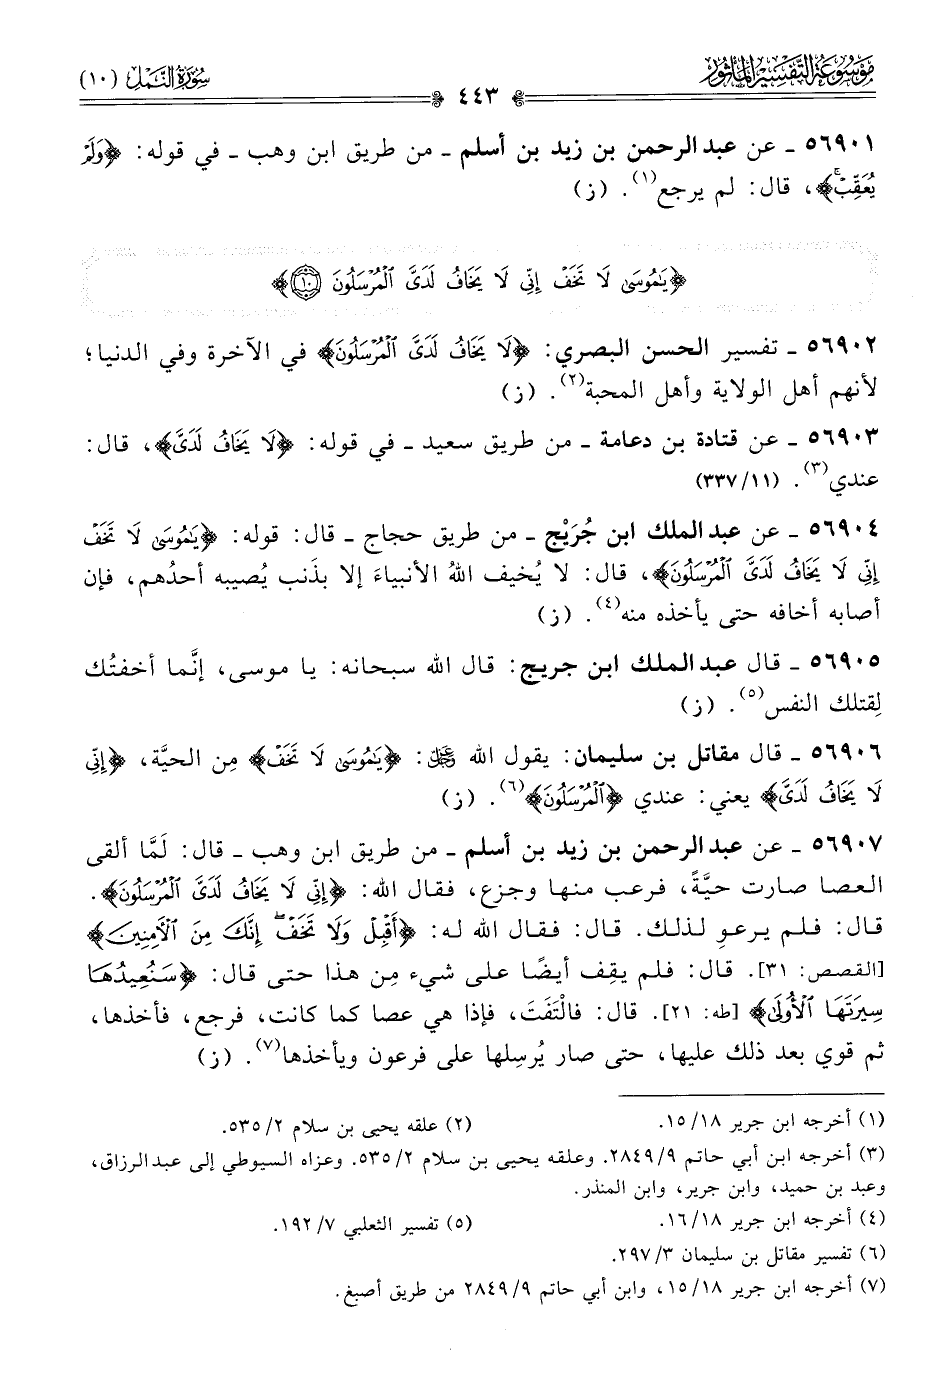 موسوعة التفسير المأثور
سورة النمل (١٠)
٤٤٣
٥٦٩٠١ ـ عن عبد الرحمن بن زيد بن أسلم ـ من طريق ابن وهب ـ في قوله: ﴿وَلَمْ
يُعَقِّبْ﴾، قال: لم يرجع(١). (ز)
﴿يَٰمُوسَىٰ لَا تَخَفْ إِنِّى لَا يَخَافُ لَدَىَّ ٱلْمُرْسَلُونَ ١٠﴾
٥٦٩٠٢ ـ تفسير الحسن البصري: ﴿لَا يَخَافُ لَدَىَّ ٱلْمُرْسَلُونَ﴾ في الآخرة وفي الدنيا؛
لأنهم أهل الولاية وأهل المحبة(٢). (ز)
٥٦٩٠٣ ـ عن قتادة بن دعامة ـ من طريق سعيد ـ في قوله: ﴿لَا يَخَافُ لَدَىَّ﴾، قال:
عندي(٣). (١١/٣٣٧)
٥٦٩٠٤ ـ عن عبد الملك ابن جُرَيْج ـ من طريق حجاج ـ قال: قوله: ﴿يَٰمُوسَىٰ لَا تَخَفْ
إِنِّى لَا يَخَافُ لَدَىَّ ٱلْمُرْسَلُونَ﴾، قال: لا يُخيف اللهُ الأنبياءَ إلا بذَنب يُصيبه أحدُهم، فإن
أصابه أخافه حتى يأخذه منه(٤). (ز)
٥٦٩٠٥ ـ قال عبد الملك ابن جريج: قال الله سبحانه: يا موسى، إنَّما أخفتُك
لِقتلك النفس(٥). (ز)
٥٦٩٠٦ ـ قال مقاتل بن سليمان: يقول الله ﷻ: ﴿يَٰمُوسَىٰ لَا تَخَفْ﴾ مِن الحيَّة، ﴿إِنِّى
لَا يَخَافُ لَدَىَّ﴾ يعني: عندي ﴿ٱلْمُرْسَلُونَ﴾(٦). (ز)
٥٦٩٠٧ ـ عن عبد الرحمن بن زيد بن أسلم ـ من طريق ابن وهب ـ قال: لَمَّا ألقى
العصا صارت حيَّةً، فرعب منها وجزع، فقال الله: ﴿إِنِّى لَا يَخَافُ لَدَىَّ ٱلْمُرْسَلُونَ﴾.
قال: فلم يرعوِ لذلك. قال: فقال الله له: ﴿أَقْبِلْ وَلَا تَخَفْ إِنَّكَ مِنَ ٱلْآمِنِينَ﴾
[القصص: ٣١]. قال: فلم يقِف أيضًا على شيء مِن هذا حتى قال: ﴿سَنُعِيدُهَا
سِيرَتَهَا ٱلْأُولَىٰ﴾ [طه: ٢١]. قال: فالْتَفَتَ، فإذا هي عصا كما كانت، فرجع، فأخذها،
ثم قوي بعد ذلك عليها، حتى صار يُرسِلها على فرعون ويأخذها(٧). (ز)
(١) أخرجه ابن جرير ١٨/ ١٥.
(٢) علقه يحيى بن سلام ٢/ ٥٣٥.
(٣) أخرجه ابن أبي حاتم ٩/ ٢٨٤٩. وعلقه يحيى بن سلام ٢/ ٥٣٥. وعزاه السيوطي إلى عبد الرزاق،
وعبد بن حميد، وابن جرير، وابن المنذر.
(٤) أخرجه ابن جرير ١٨/ ١٦.
(٥) تفسير الثعلبي ٧/ ١٩٢.
(٦) تفسير مقاتل بن سليمان ٣/ ٢٩٧.
(٧) أخرجه ابن جرير ١٨/ ١٥، وابن أبي حاتم ٩/ ٢٨٤٩ من طريق أصبغ.